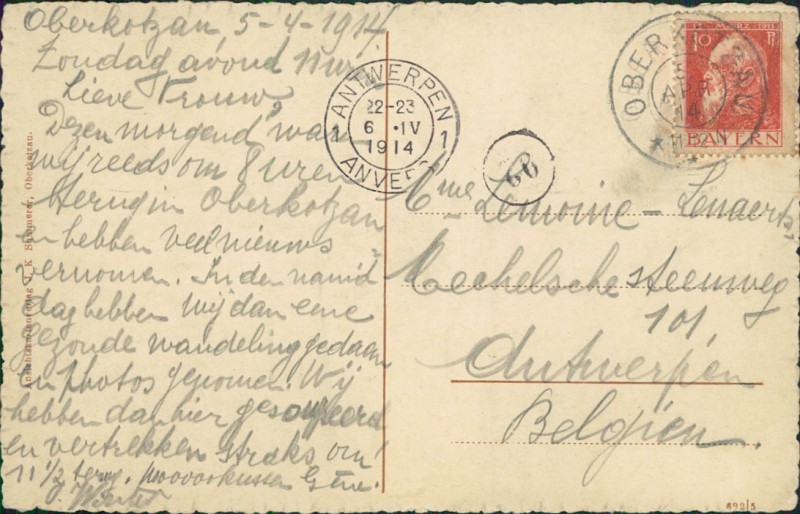 Oberkotzau 5-4-1914
Zondag avond 11 uur
Lieve Vrouw,
Dezen morgend waren
wij reeds om 8 uren
terug in Oberkotzau
en hebben veel nieuws
vernomen. In den namid=
dag hebben wij dan eene
gezonde wandeling gedaan
en photos genomen. Wij
hebben dan hier gesoupeerd
en vertrekken straks om
11 1/2 terug.
ANTWERPEN
22-23
6 .IV
1914
1 1
ANVERS
66
OBERKOTZAU
5
APR
14
MÄRZ 1911
10 Pf
BAYERN
Mme Lemoine-Lenaerts
Mechelsche steenweg
101
Antwerpen
Belgien.
Oberkotzau.